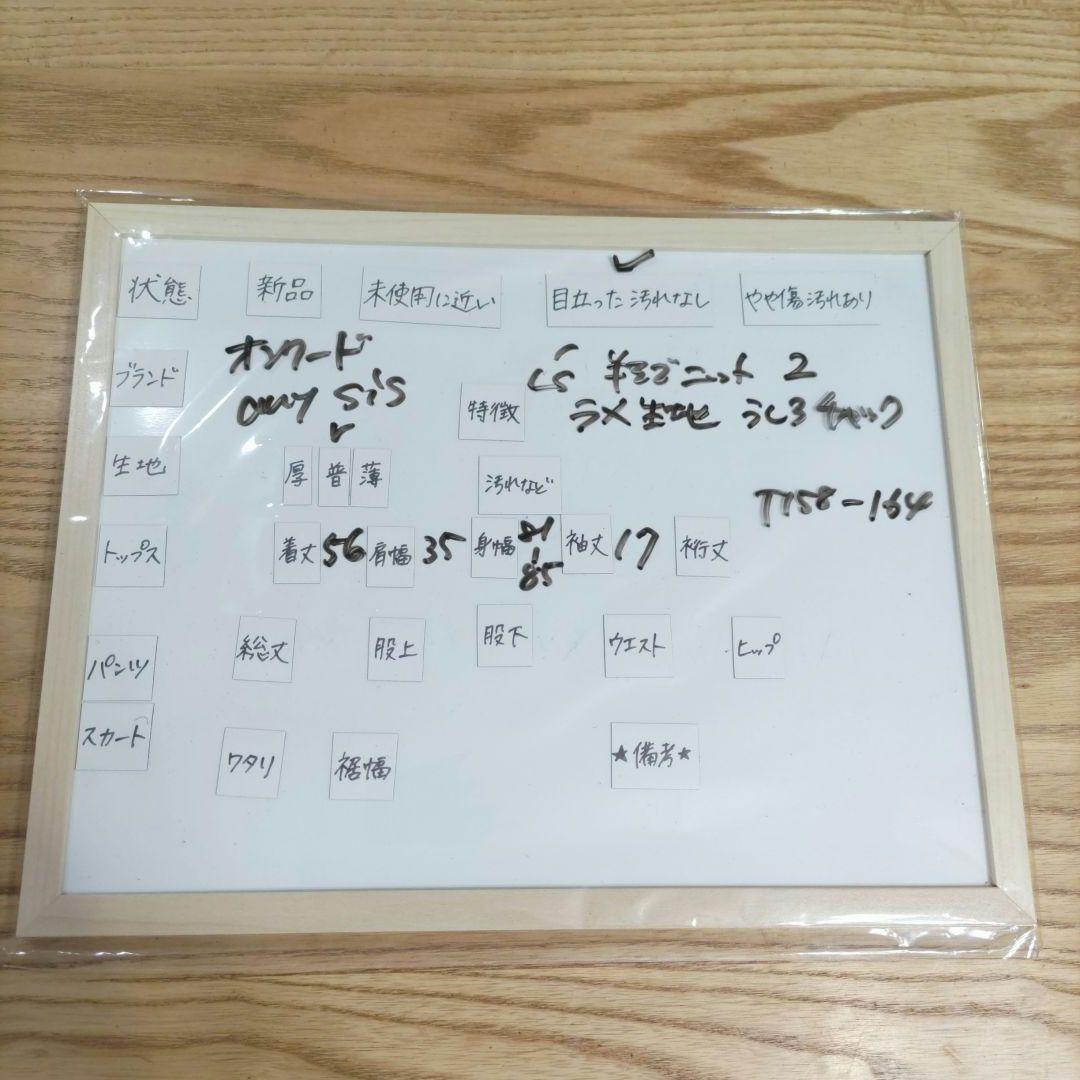 状態 新品 未使用に近い ✓ 目立った汚れなし やや傷汚れあり
ブランド オンワード
any sis
特徴 半そでニット 2
ラメ生地 うしろチャック
生地 厚 ✓ 普 薄 汚れなど
T158-164
トップス 着丈 56 肩幅 35 身幅 81 85 袖丈 17 裄丈
パンツ 総丈 股上 股下 ウエスト ヒップ
スカート ワタリ 裾幅 ★備考★